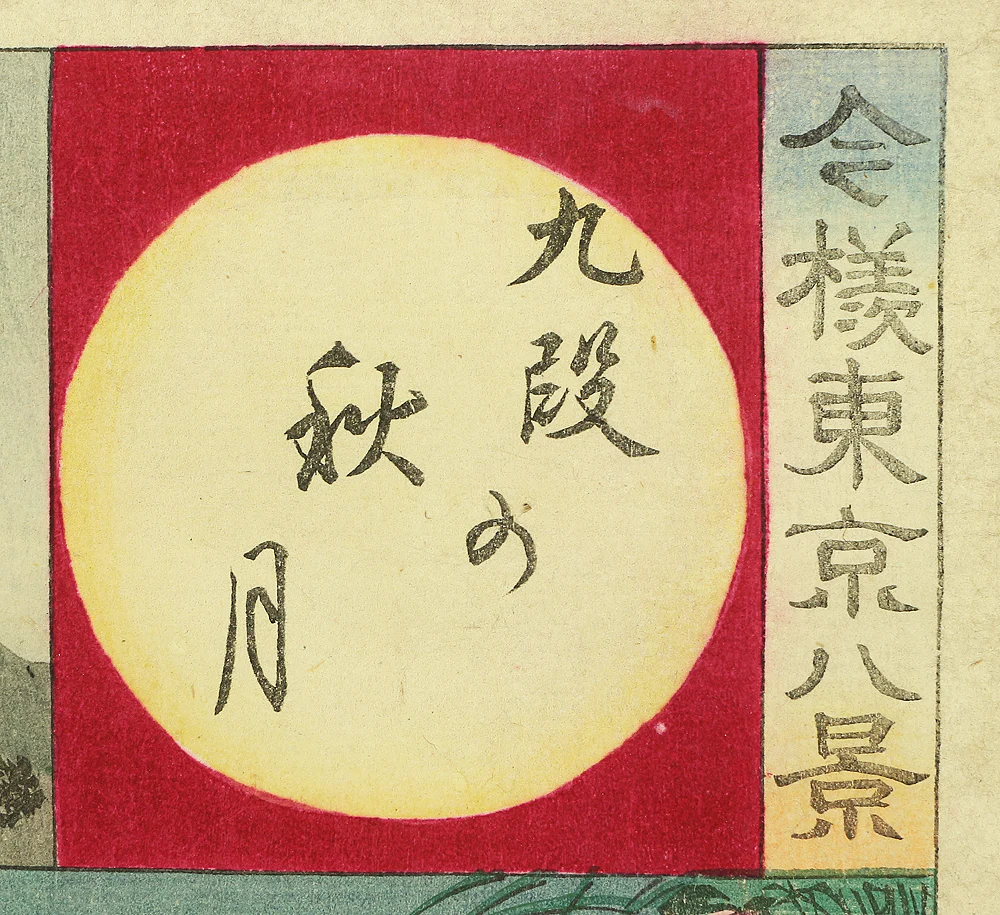 今様東京八景
九段の
秋
月